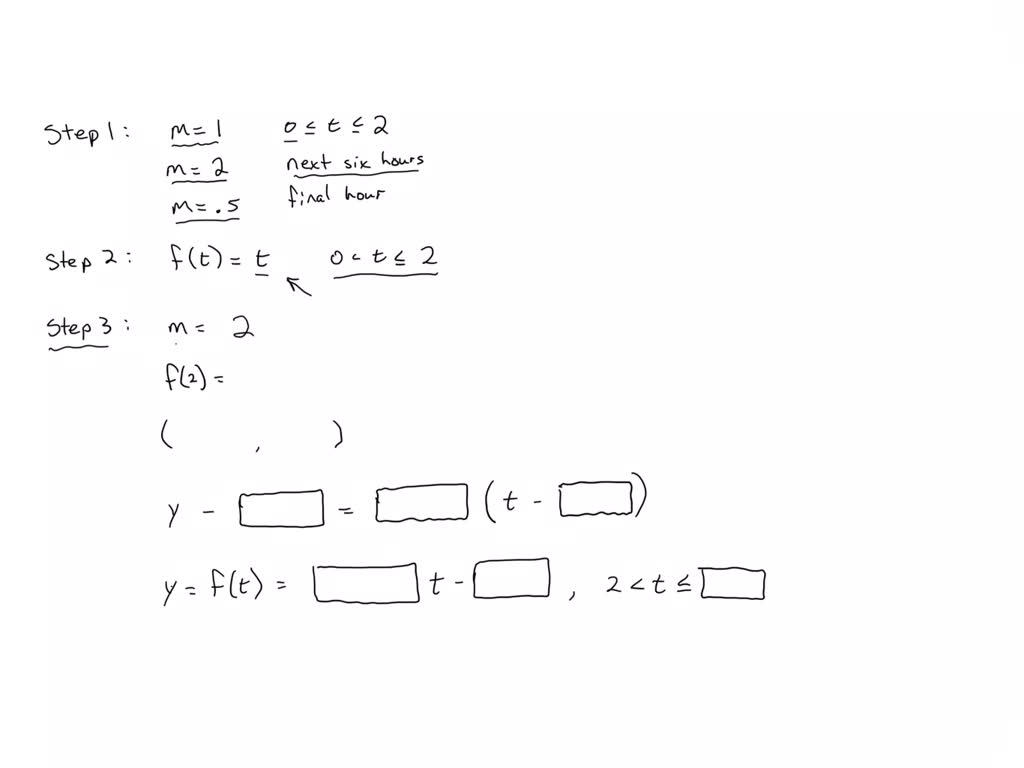 Step 1: m = 1 0 ≤ t ≤ 2
m = 2 next six hours
m = .5 final hour
Step 2: f(t) = t 0 < t ≤ 2
Step 3: m = 2
f(2) =
( , )
y - = (t - )
y = f(t) = t - , 2 < t ≤